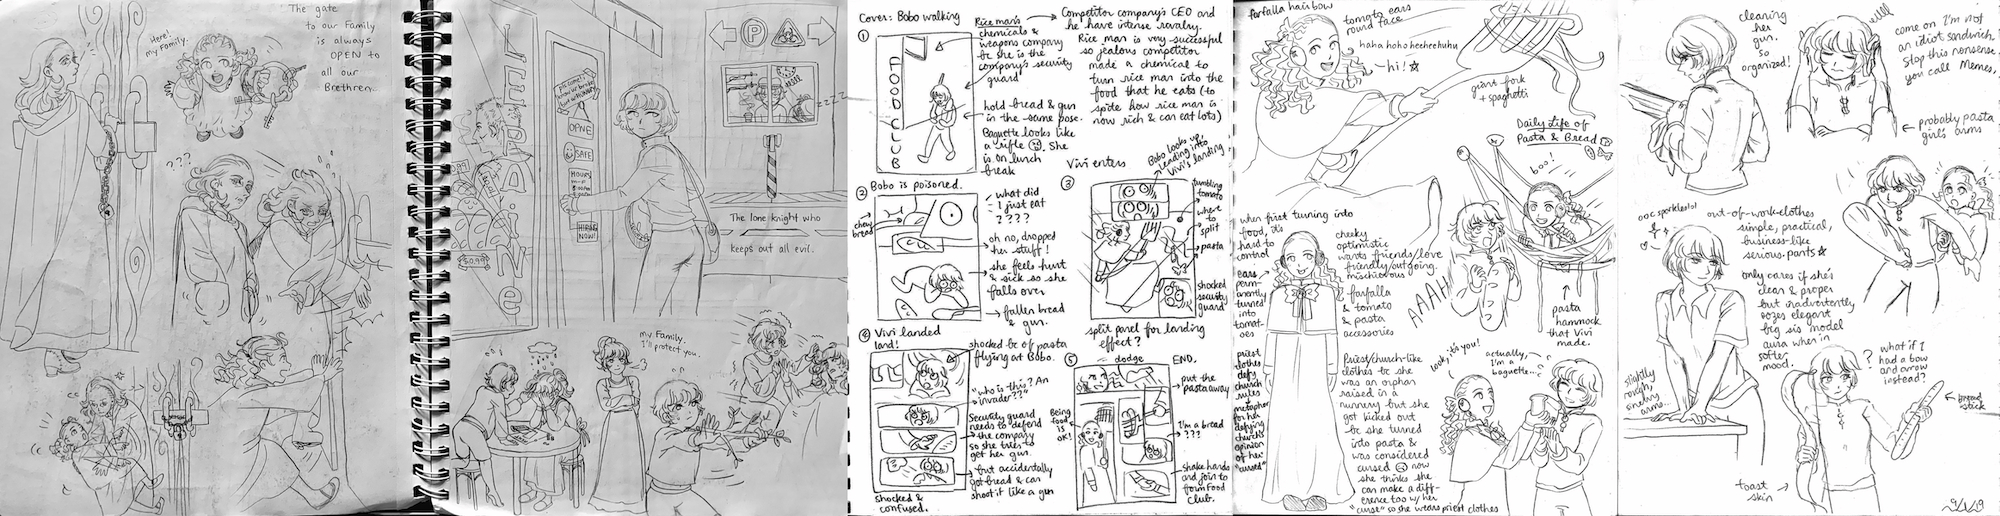 The gate
to our Family
is always
OPEN to
all our
Brethren.
Here!
my Family.
???
LEPAINE
OPNE
SAFE
HOURS
HIRING
NOW!
$0.99
P
zzzz
The lone knight who
keeps out all evil.
my Family.
I'll protect you.
Cover: Bobo walking
①
FOOD CLUB
Rice man's
chemicals &
weapons company
bc she is the
company's security
guard
hold bread & gun
in the same pose.
Baguette looks like
a rifle. She
is on lunch
break
Competitor company's CEO and
he have intense rivalry.
Rice man is very successful
so jealous competitor
made a chemical to
turn rice man into the
food that he eats (to
spite how rice man is
now rich & can eat lots)
② Bobo is poisoned.
chew
bread
what did
I just eat
????
oh no, dropped
her stuff!
she feels hurt
& sick so she
falls over
fallen bread
& gun.
Vivi enters
③
Bobo looks up,
leading into
Vivi's landing
tumbling
tomato
where
to
split
pasta
shocked
security
guard
split panel for landing
effect?
④ Vivi landed
land!
shocked bc of pasta
flying at Bobo.
"who is this? An
invader??"
Security guard
needs to defend
the company
so she tries to
get her gun.
but accidentally
got bread & can
shoot it like a gun
shocked &
confused.
⑤
dodge
END.
put the
pasta away
Being
food
is
OK!
I'm a bread
???
shake hands
and join to
form Food
Club.
farfalla hair bow
tomato ears
round face
haha hoho heeheehuhu
hi! ☆
giant fork
+ spaghetti
Daily Life of
Pasta & Bread
boo!
AAAH!
pasta
hammock
that Vivi
made.
when first turning into
food, it's
hard to
control
ears
perm-
anently
turned
into
tomat-
oes
cheeky
optimistic
wants friends/love
friendly/outgoing.
mischievous
farfalla
& tomato
& pasta
accessories
priest
clothes
defy
church
rules
metaphor
for her
defying
church's
opinion
of her
"cursed"
Priest/church-like
clothes bc she
was an orphan
raised in a
nunnery but she
got kicked out
bc she turned
into pasta &
was considered
cursed now
she thinks she
can make a diff-
erence too w/ her
"curse" so she wears priest clothes
Look, it's you!
actually,
I'm a
baguette...
cleaning
her
gun.
so
organized!
come on I'm not
an idiot sandwich!
Stop this nonsense
you call Memes.
probably pasta
girl's arms
ooc sparkles lol
out-of-work-clothes
simple, practical,
business-like
serious. pants ☆
only cares if she's
clean & proper
but inadvertently
oozes elegant
big sis model
aura when in
softer
mood.
slightly
rough,
sinewy
arms...
? what if I
had a bow
and arrow
instead?
bread
stick
toast
skin